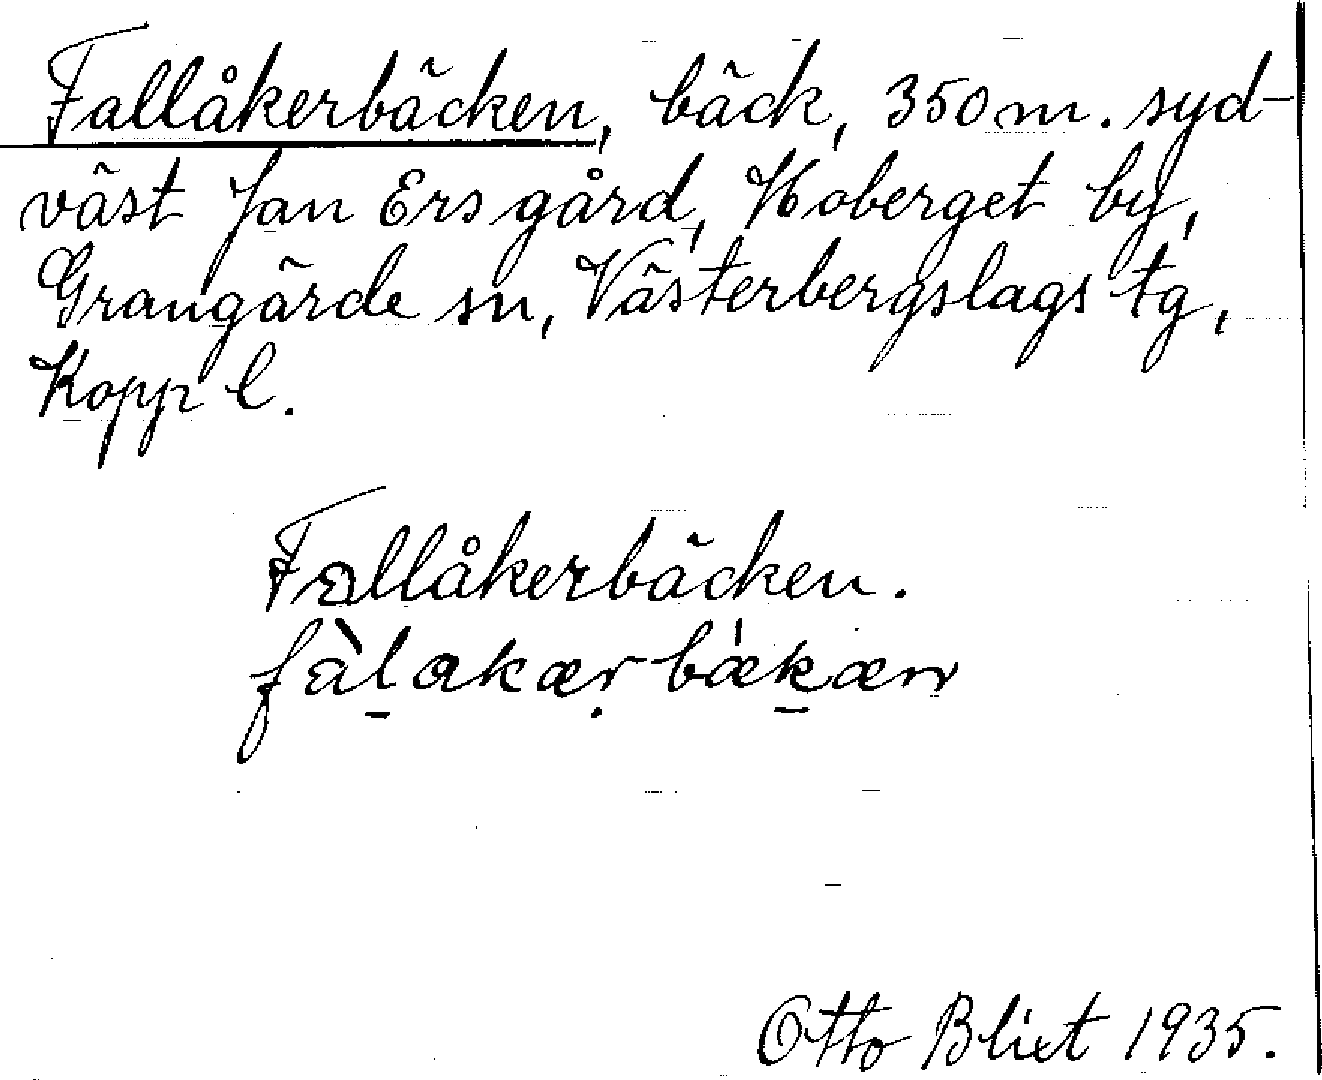 Fallåkerbäcken, bäck, 350 m. syd-
väst Jan Ers gård, Hoberget by,
Grangärde sn, Västerbergslags tg,
Kopp l.
Fallåkerbäcken.
fàlakær bækæn
Otto Blixt 1935.